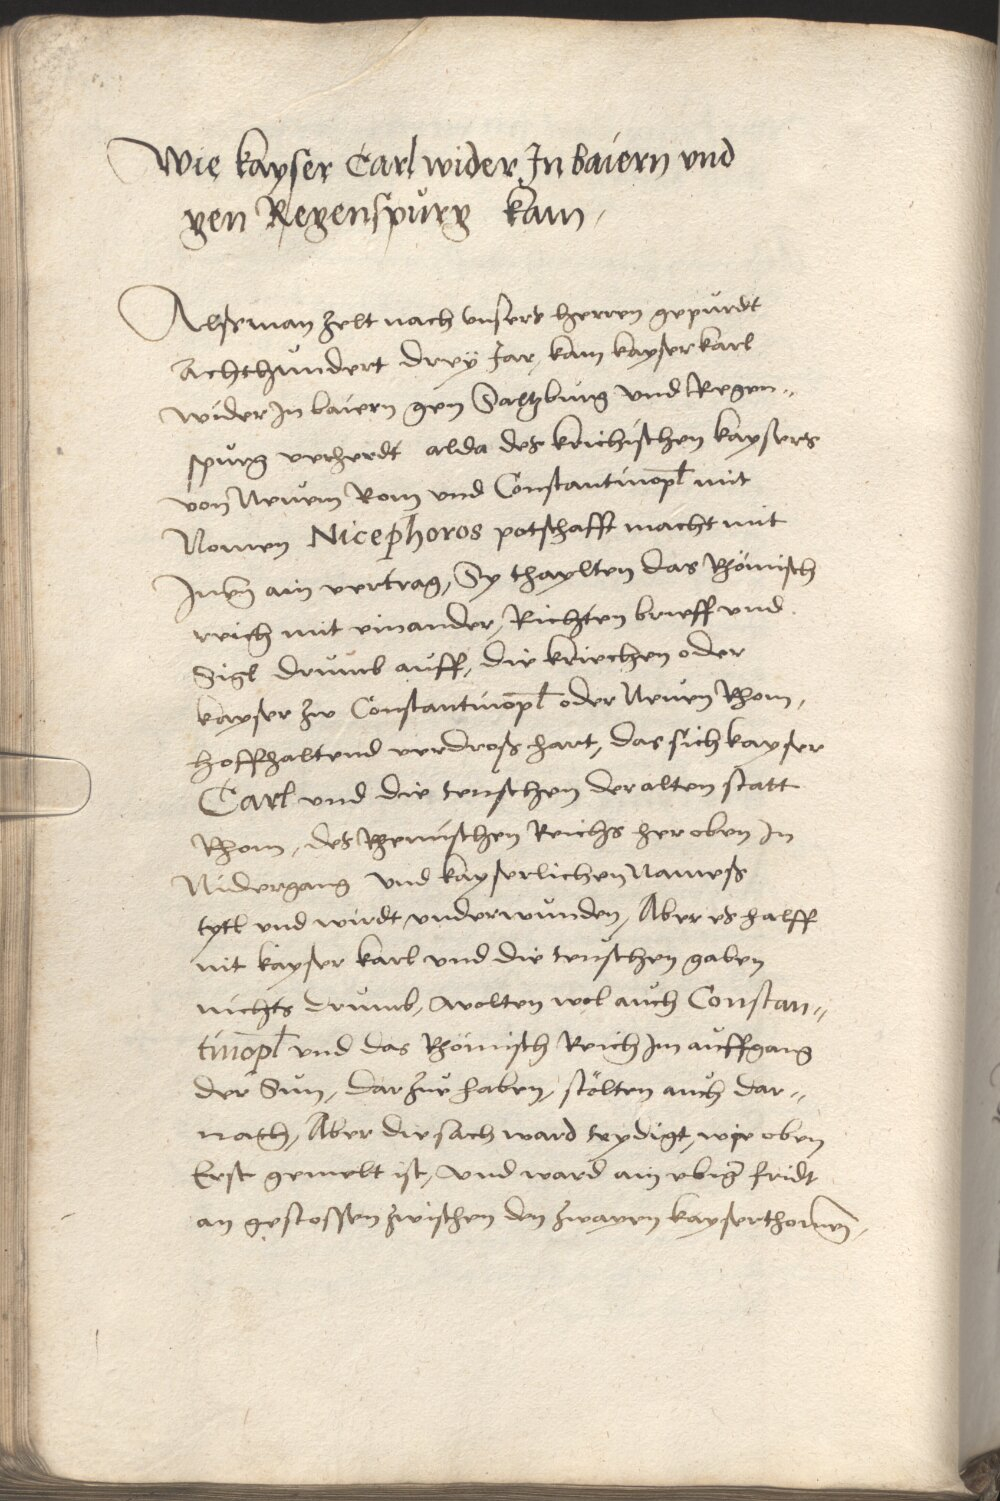 Wie kayser Carl wider In baiern vnd
gen Regenspurg kam,
Alß man zelt nach vnsers herren gepurdt
Achthundert drey Jar, kam kayser karl
wider In baiern gen Saltzburg vnd Regen„
spurg verherdt alda des krichischen kaysers
von Neuem Rom vnd Constantinopl mit
Nomen Nicephoros potschafft macht mit
Inen ain vertrag, Sy thaylten das Römisch
reich mit einander, Richten brieff vnd
Sigl drumb auff, die kriechen oder
kayser zu Constantinopl oder Neuen Rhom,
hoffhaltend verdroß hart, das sich kayser
Carl vnd die teuschen der alten statt
Rhom, des Rhemischen Reichs heroben In
Nidergang vnd kayserlichen Nameß
tytl vnd wirdt vnderwunden, Aber es halff
nit kayser karl vnd die teuschen gaben
nichts drumb, wolten wol auch Constan„
tinopl vnd das Römisch Reich Im auffgang
der Sun, darzue haben, stölten auch dar„
nach, Aber die sach ward teydigt, wie oben
Erst gemelt ist, vnd ward ain ebiger fridt
an gestossen zwischen den zwayen kayserthomen,